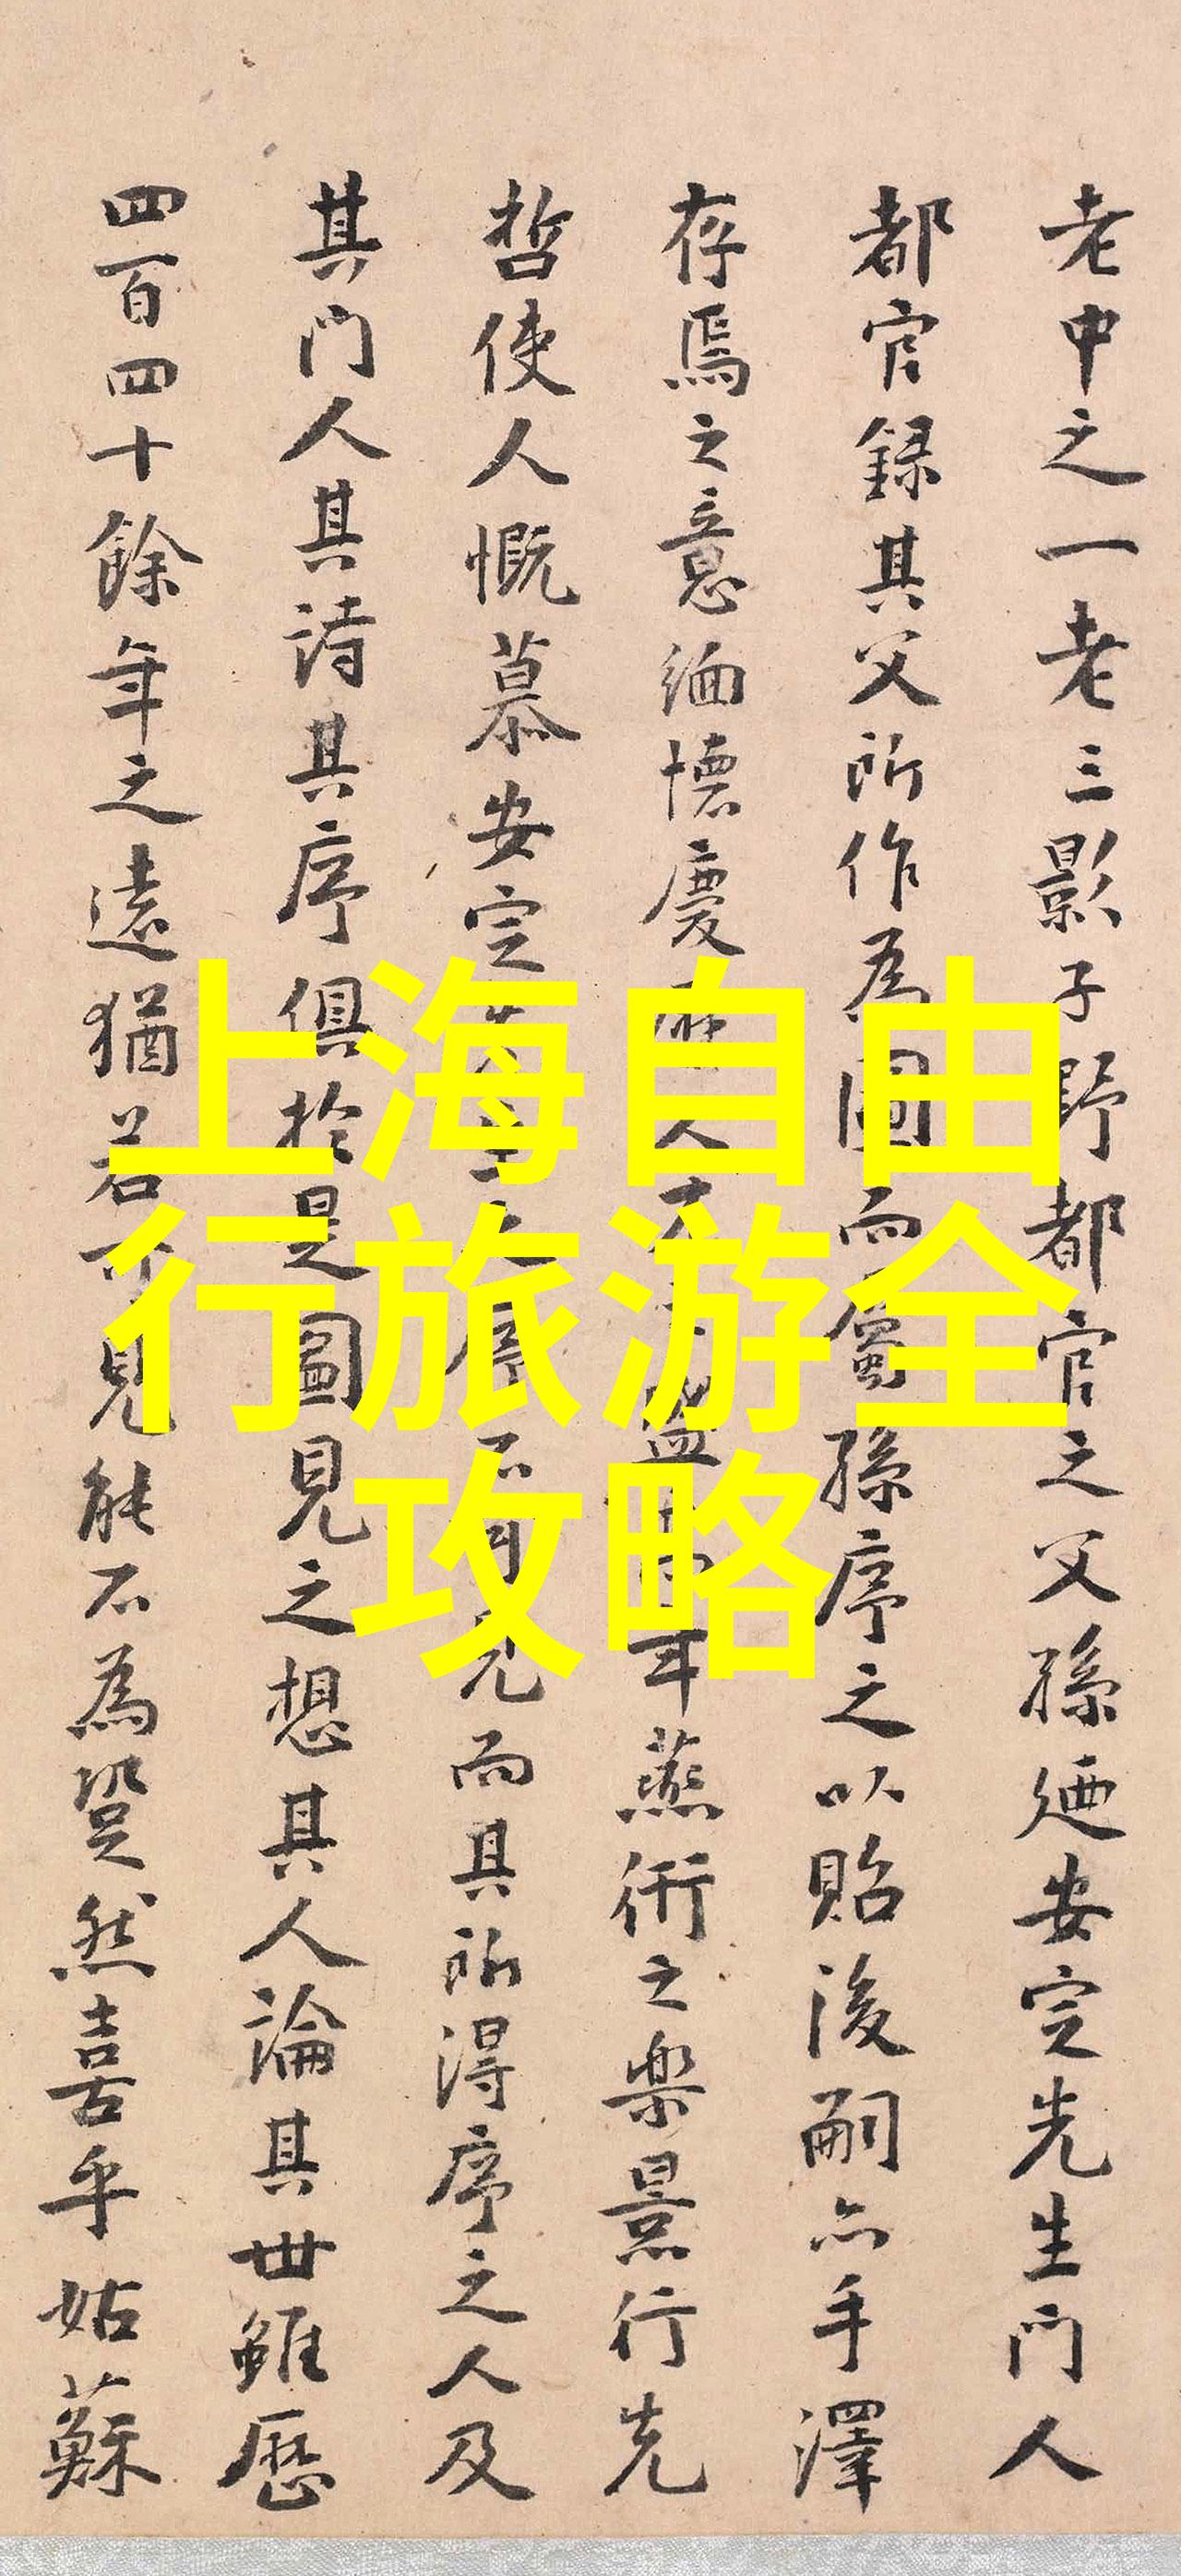 老中之一老三影子野都官之父孫廼安定先生門人
都官録其父所作為圖而屬孫序之以貽後嗣亦手澤
存焉之意緬懷慶耳蒸術之樂景行先
哲使人慨慕安定序不可見而其所得序之人及
其門人其詩其序俱於是圖見之想其人論其世雖歷
四百四十餘年之遠猶若可見能不為跫然喜乎姑蘇
上海自由
行旅游全
攻略